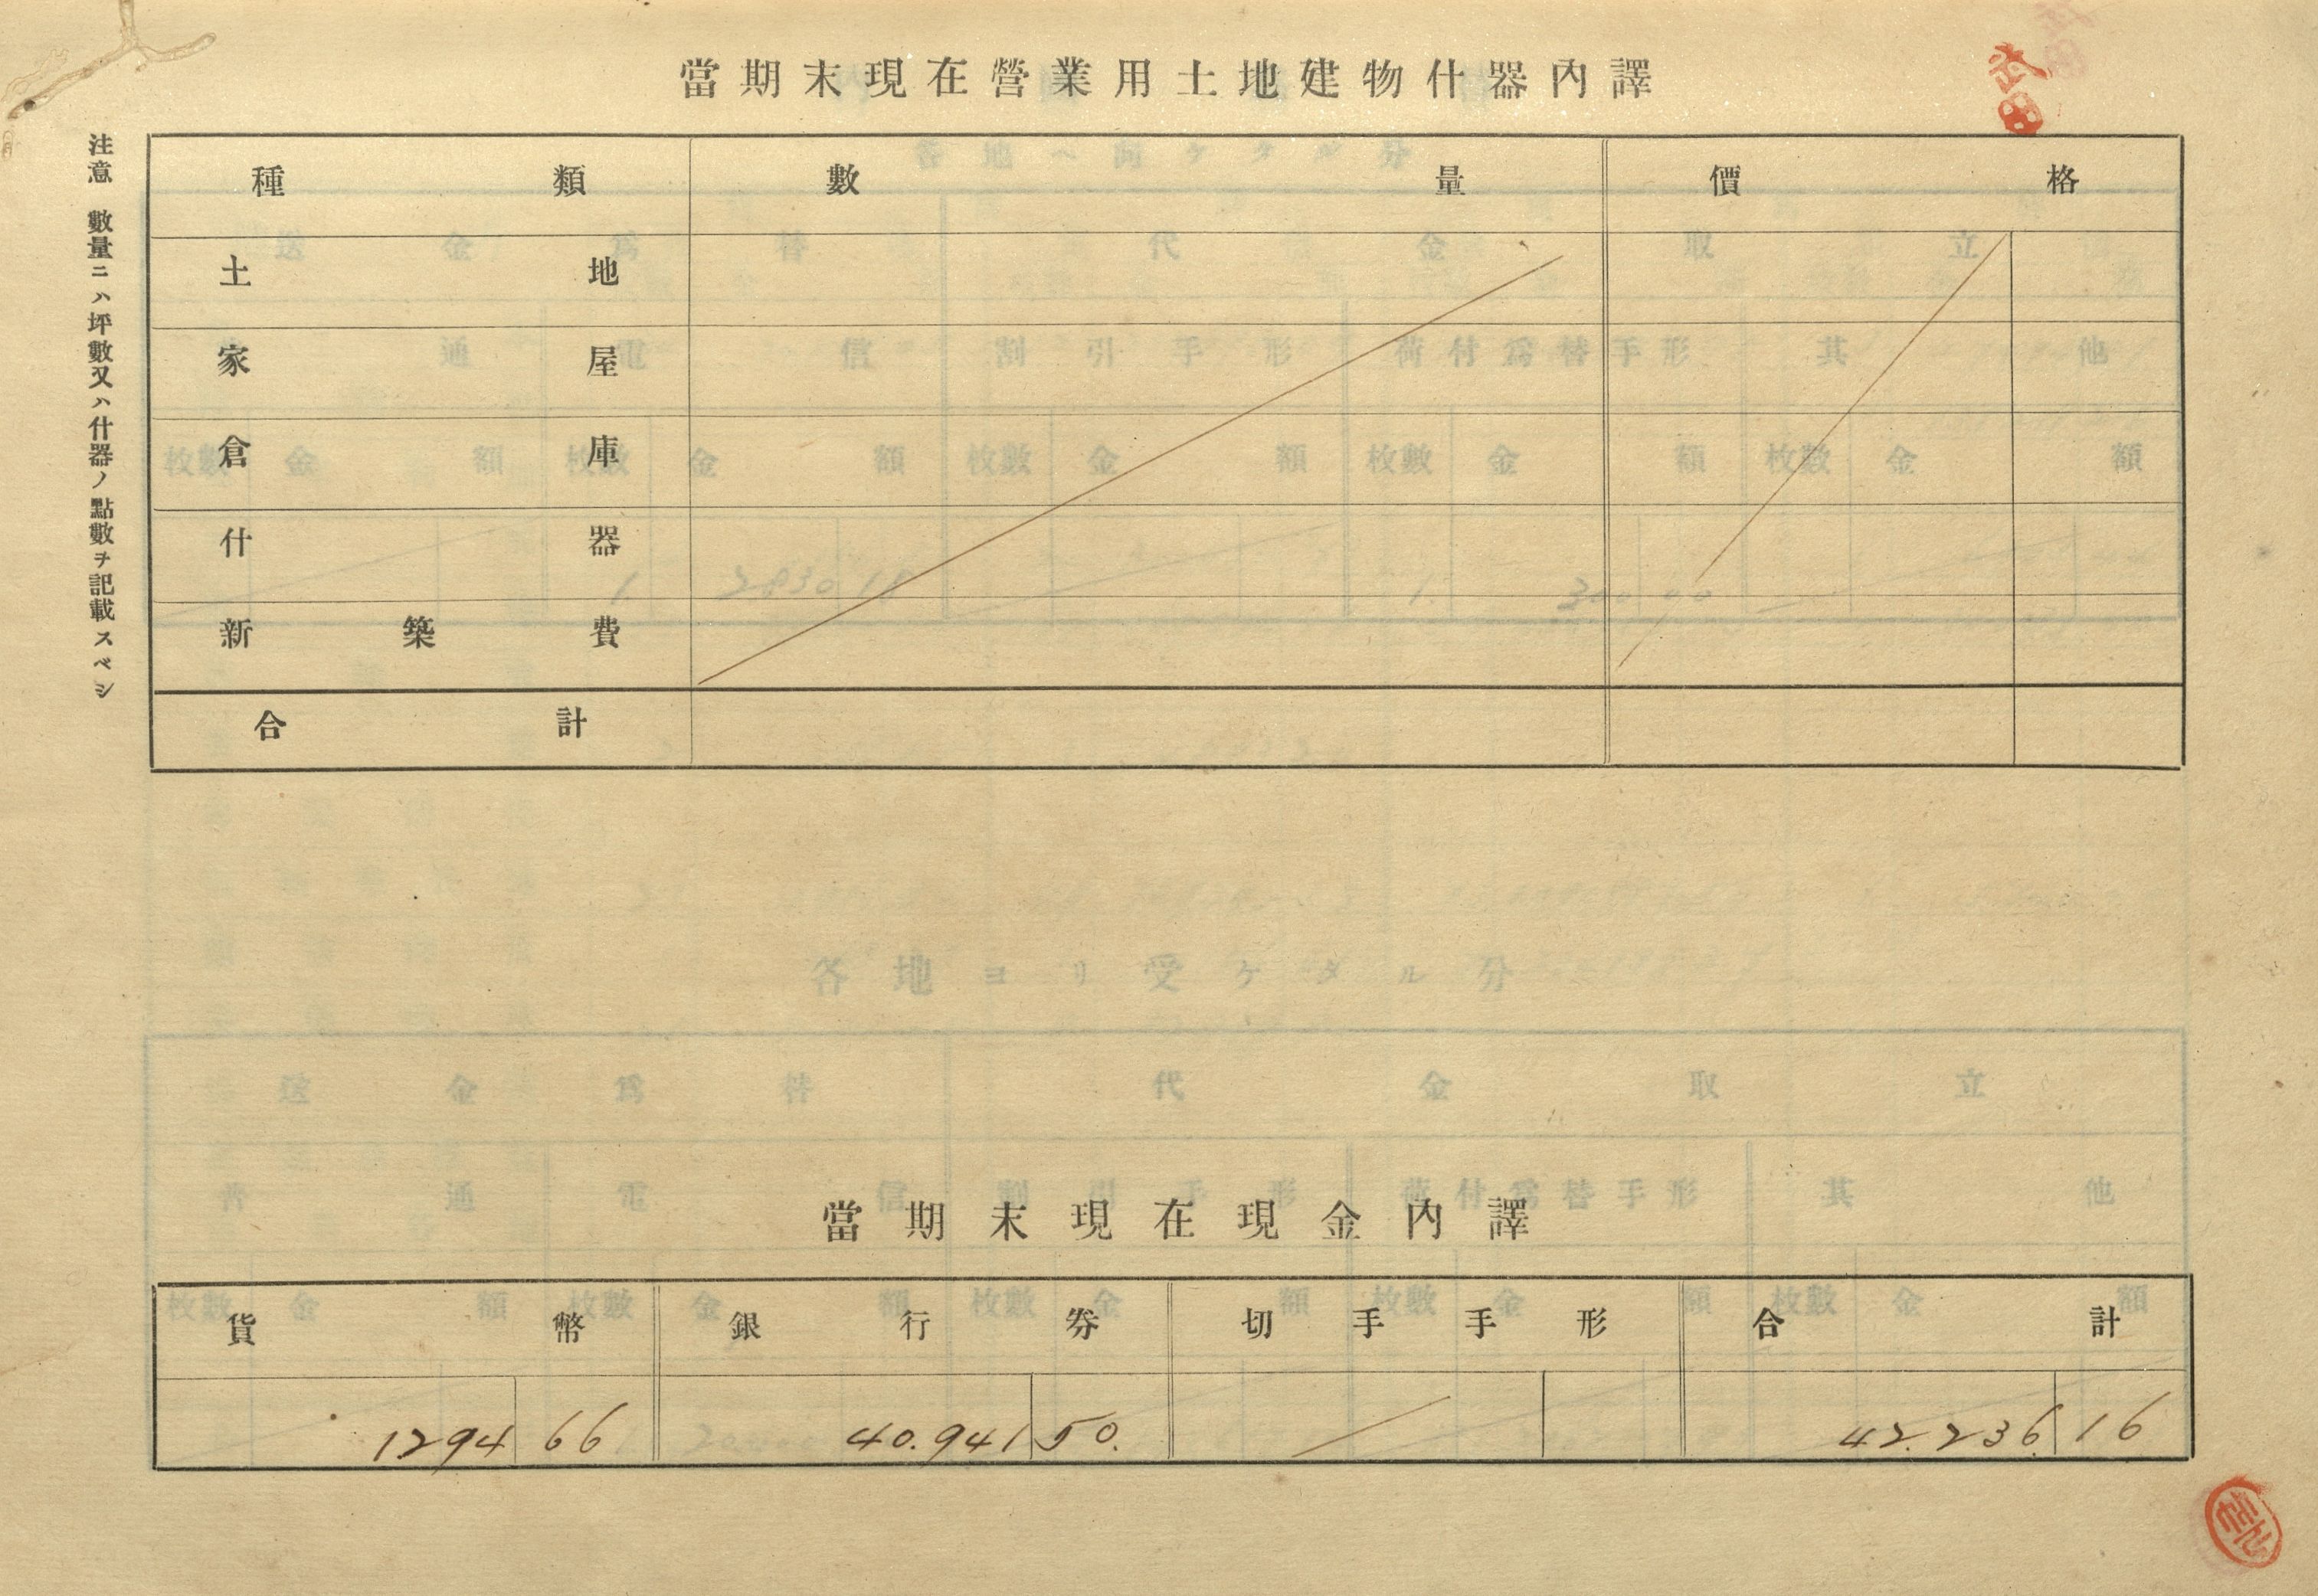 當期末現在營業用土地建物什器內譯
武田
注意 數量ニハ坪數又ハ什器ノ點數ヲ記載スベシ
種類 數量 價格
土地
家屋
倉庫
什器
新築費
合計
當期末現在現金內譯
貨幣 銀行券 切手手形 合計
1294 66 40.941 50. 42.236 16